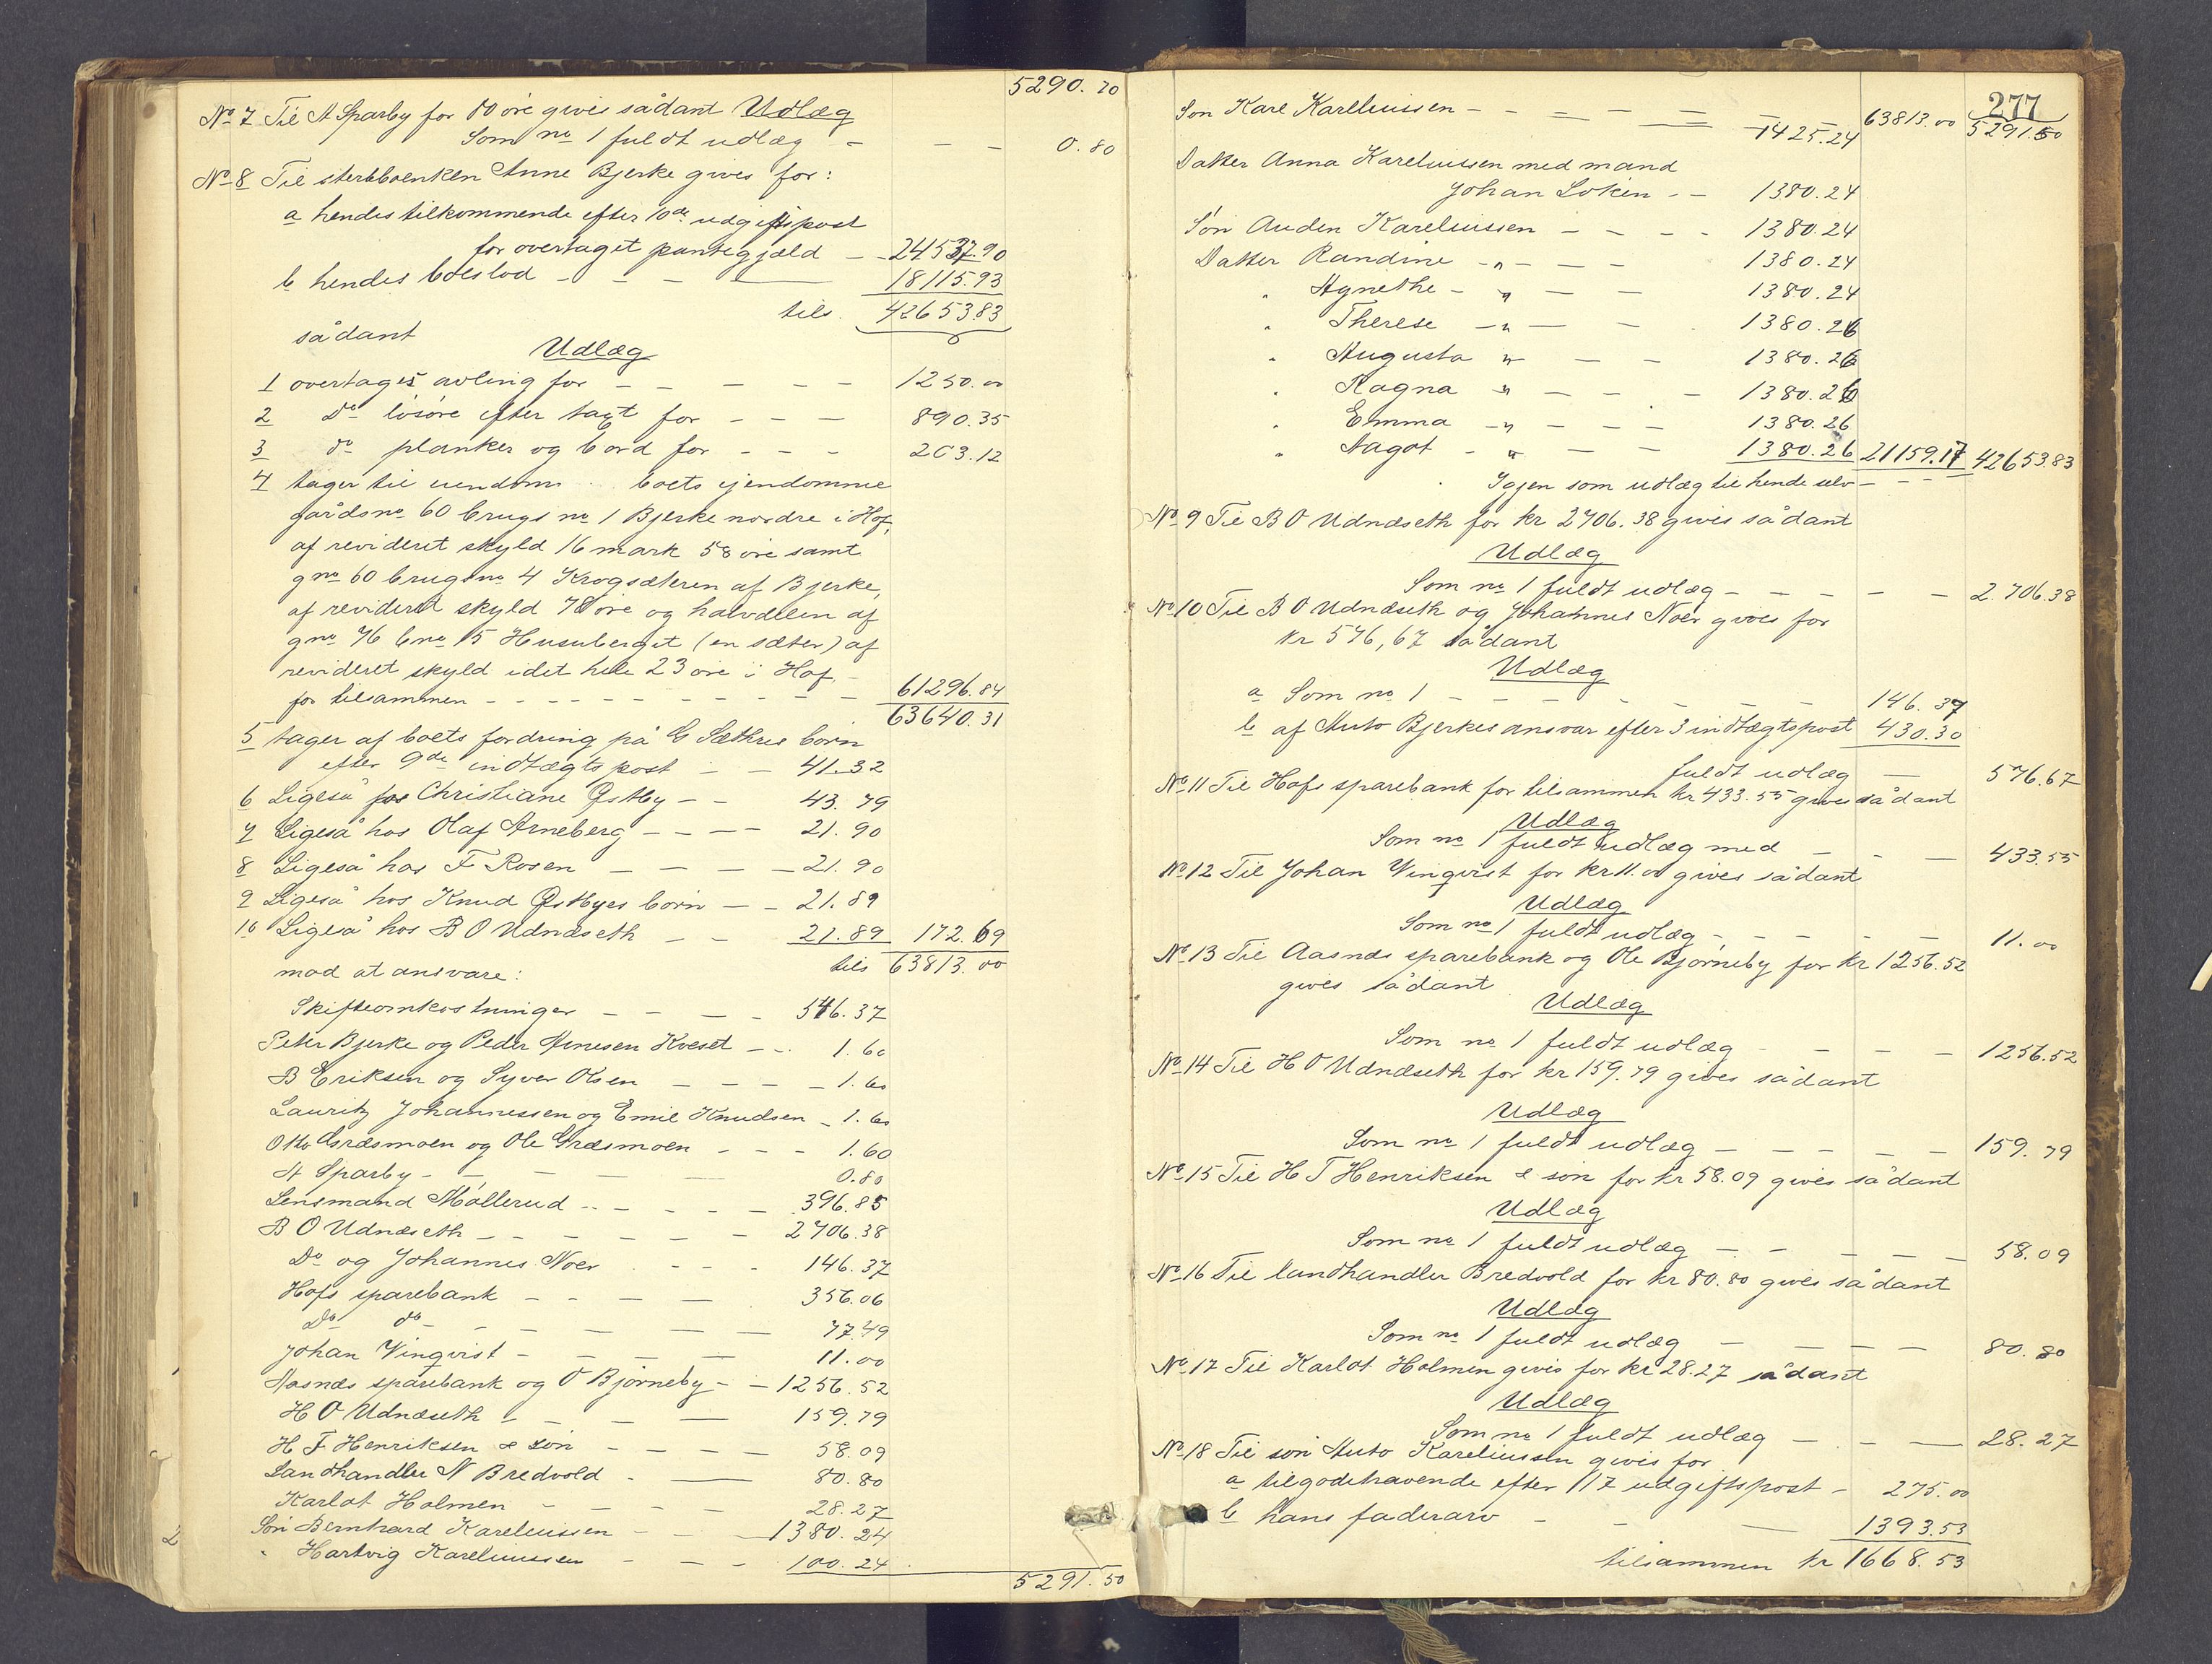 5290.70
No 7 Til A Sparby for 80 øre gives sådant Udlæg
Som no 1 fuldt udlæg - - - 0.80
No 8 Til sterkboenken Anne Bjerke gives for:
a hendes tilkommende efter 10de udgiftspost
for overtaget pantegjæld - - 24537.90
b hendes boeslod - - - 18115.93
tils. 42653.83
sådant
Udlæg
1 overtages avling for - - - - - 1250.00
2 Do løsøre efter taxt for - - - 890.35
3 do planker og bord for - - - 203.12
4 tager til eiendom boets ejendomme
gårdsno 60 brugs no 1 Bjerke nordre i Hof,
af revideret skyld 16 mark 58 øre samt
gno 60 brugsno 4 Krogsæteren af Bjerke,
af revideret skyld 78 øre og halvdelen af
gno 76 bno 15 Husuberget (en sæter) af
revideret skyld idet hele 23 øre i Hof -
for tilsammen - - - - - - - - 61296.84
63640.31
5 tager af boets fordring på G Sæthres børn
efter 9de indtægtspost - - 41.32
6 Ligeså hos Christiane Østby - - 43.79
7 Ligeså hos Olaf Arneberg - - - - 21.90
8 Ligeså hos F Rosen - - - - 21.90
9 Ligeså hos Knud Østbyes børn - - 21.89
10 Ligeså hos B O Udnæseth - - 21.89 172.69
mod at ansvare: tils 63813.00
Skifteomkostninger - - - - 546.37
Peter Bjerke og Peder Arnesen Kveset - - 1.60
B Eriksen og Syver Olsen - - - - 1.60
Lauritz Johannessen og Emil Knudsen - 1.60
Otto Græsmoen og Ole Græsmoen - - - 1.60
A Sparby - - - - 0.80
Lensmand Møllerud - - - - - 396.85
B O Udnæseth - - - - - - 2706.38
Do og Johannes Noer - - - 146.37
Hofs sparebank - - - - 356.06
Do do - - - - - - 77.49
Johan Vinqvist - - - - 11.00
Aasnæs sparebank og O Bjørneby - - 1256.52
H O Udnæseth - - - - 159.79
H F Henriksen & søn - - - - 58.09
Landhandler N Bredvold - - 80.80
Karlot Holmen - - - - 28.27
Søn Bernhard Kareliussen - - - 1380.24
" Hartvig Kareliussen - - - 100.24
5291.50
277
Søn Karl Kareliussen - - - - - 1425.24 63813.00 5291.50
Datter Anna Kareliussen med mand
Johan Løken - - 1380.24
Søn Auden Kareliussen - - - - 1380.24
Datter Randine - " - - - 1380.24
" Agnethe - " - - 1380.24
" Therese - " - - 1380.26
" Augusta " - - 1380.26
" Ragna " - - - 1380.26
" Emma - " - - - 1380.26
" Aagot - " - - 1380.26 21159.17 42653.83
Igjen som udlæg til hende selv - - - -
No 9 Til B O Udnæseth for kr 2706.38 gives sådant
Udlæg
Som no 1 fuldt udlæg - - - - - 2.706.38
No 10 Til B O Udnæseth og Johannes Noer gives for
kr 576,67 sådant
Udlæg
a Som no 1 - - - - - - 146.37
b af Auto Bjerkes ansvar efter 3 indtægtspost 430.30
fuldt udlæg - 576.67
No 11 Til Hofs sparebank for tilsammen kr 433.55 gives sådant
Udlæg
Som no 1 fuldt udlæg med - - - 433.55
No 12 Til Johan Vinqvist for kr 11.00 gives sådant
Udlæg
Som no 1 fuldt udlæg - - - - - 11.00
No 13 Til Aasnæs sparebank og Ole Bjørneby for kr 1256.52
gives sådant
Udlæg
Som no 1 fuldt udlæg - - - - 1256.52
No 14 Til H O Udnæseth for kr 159.79 gives sådant
Udlæg
Som no 1 fuldt udlæg - - - - - 159.79
No 15 Til H T Henriksen & søn for kr 58.09 gives sådant
Udlæg
Som no 1 fuldt udlæg - - - - - 58.09
No 16 Til landhandler Bredvold for kr 80.80 gives sådant
Udlæg
Som no 1 fuldt udlæg - - - - 80.80
No 17 Til Karlot Holmen gives for kr 28.27 sådant
Udlæg
Som no 1 fuldt udlæg - - - 28.27
No 18 Til søn Auto Kareliussen gives for
a tilgodehavende efter 117 udgiftspost - 275.00
b hans faderarv - - - 1393.53
tilsammen kr 1668.53